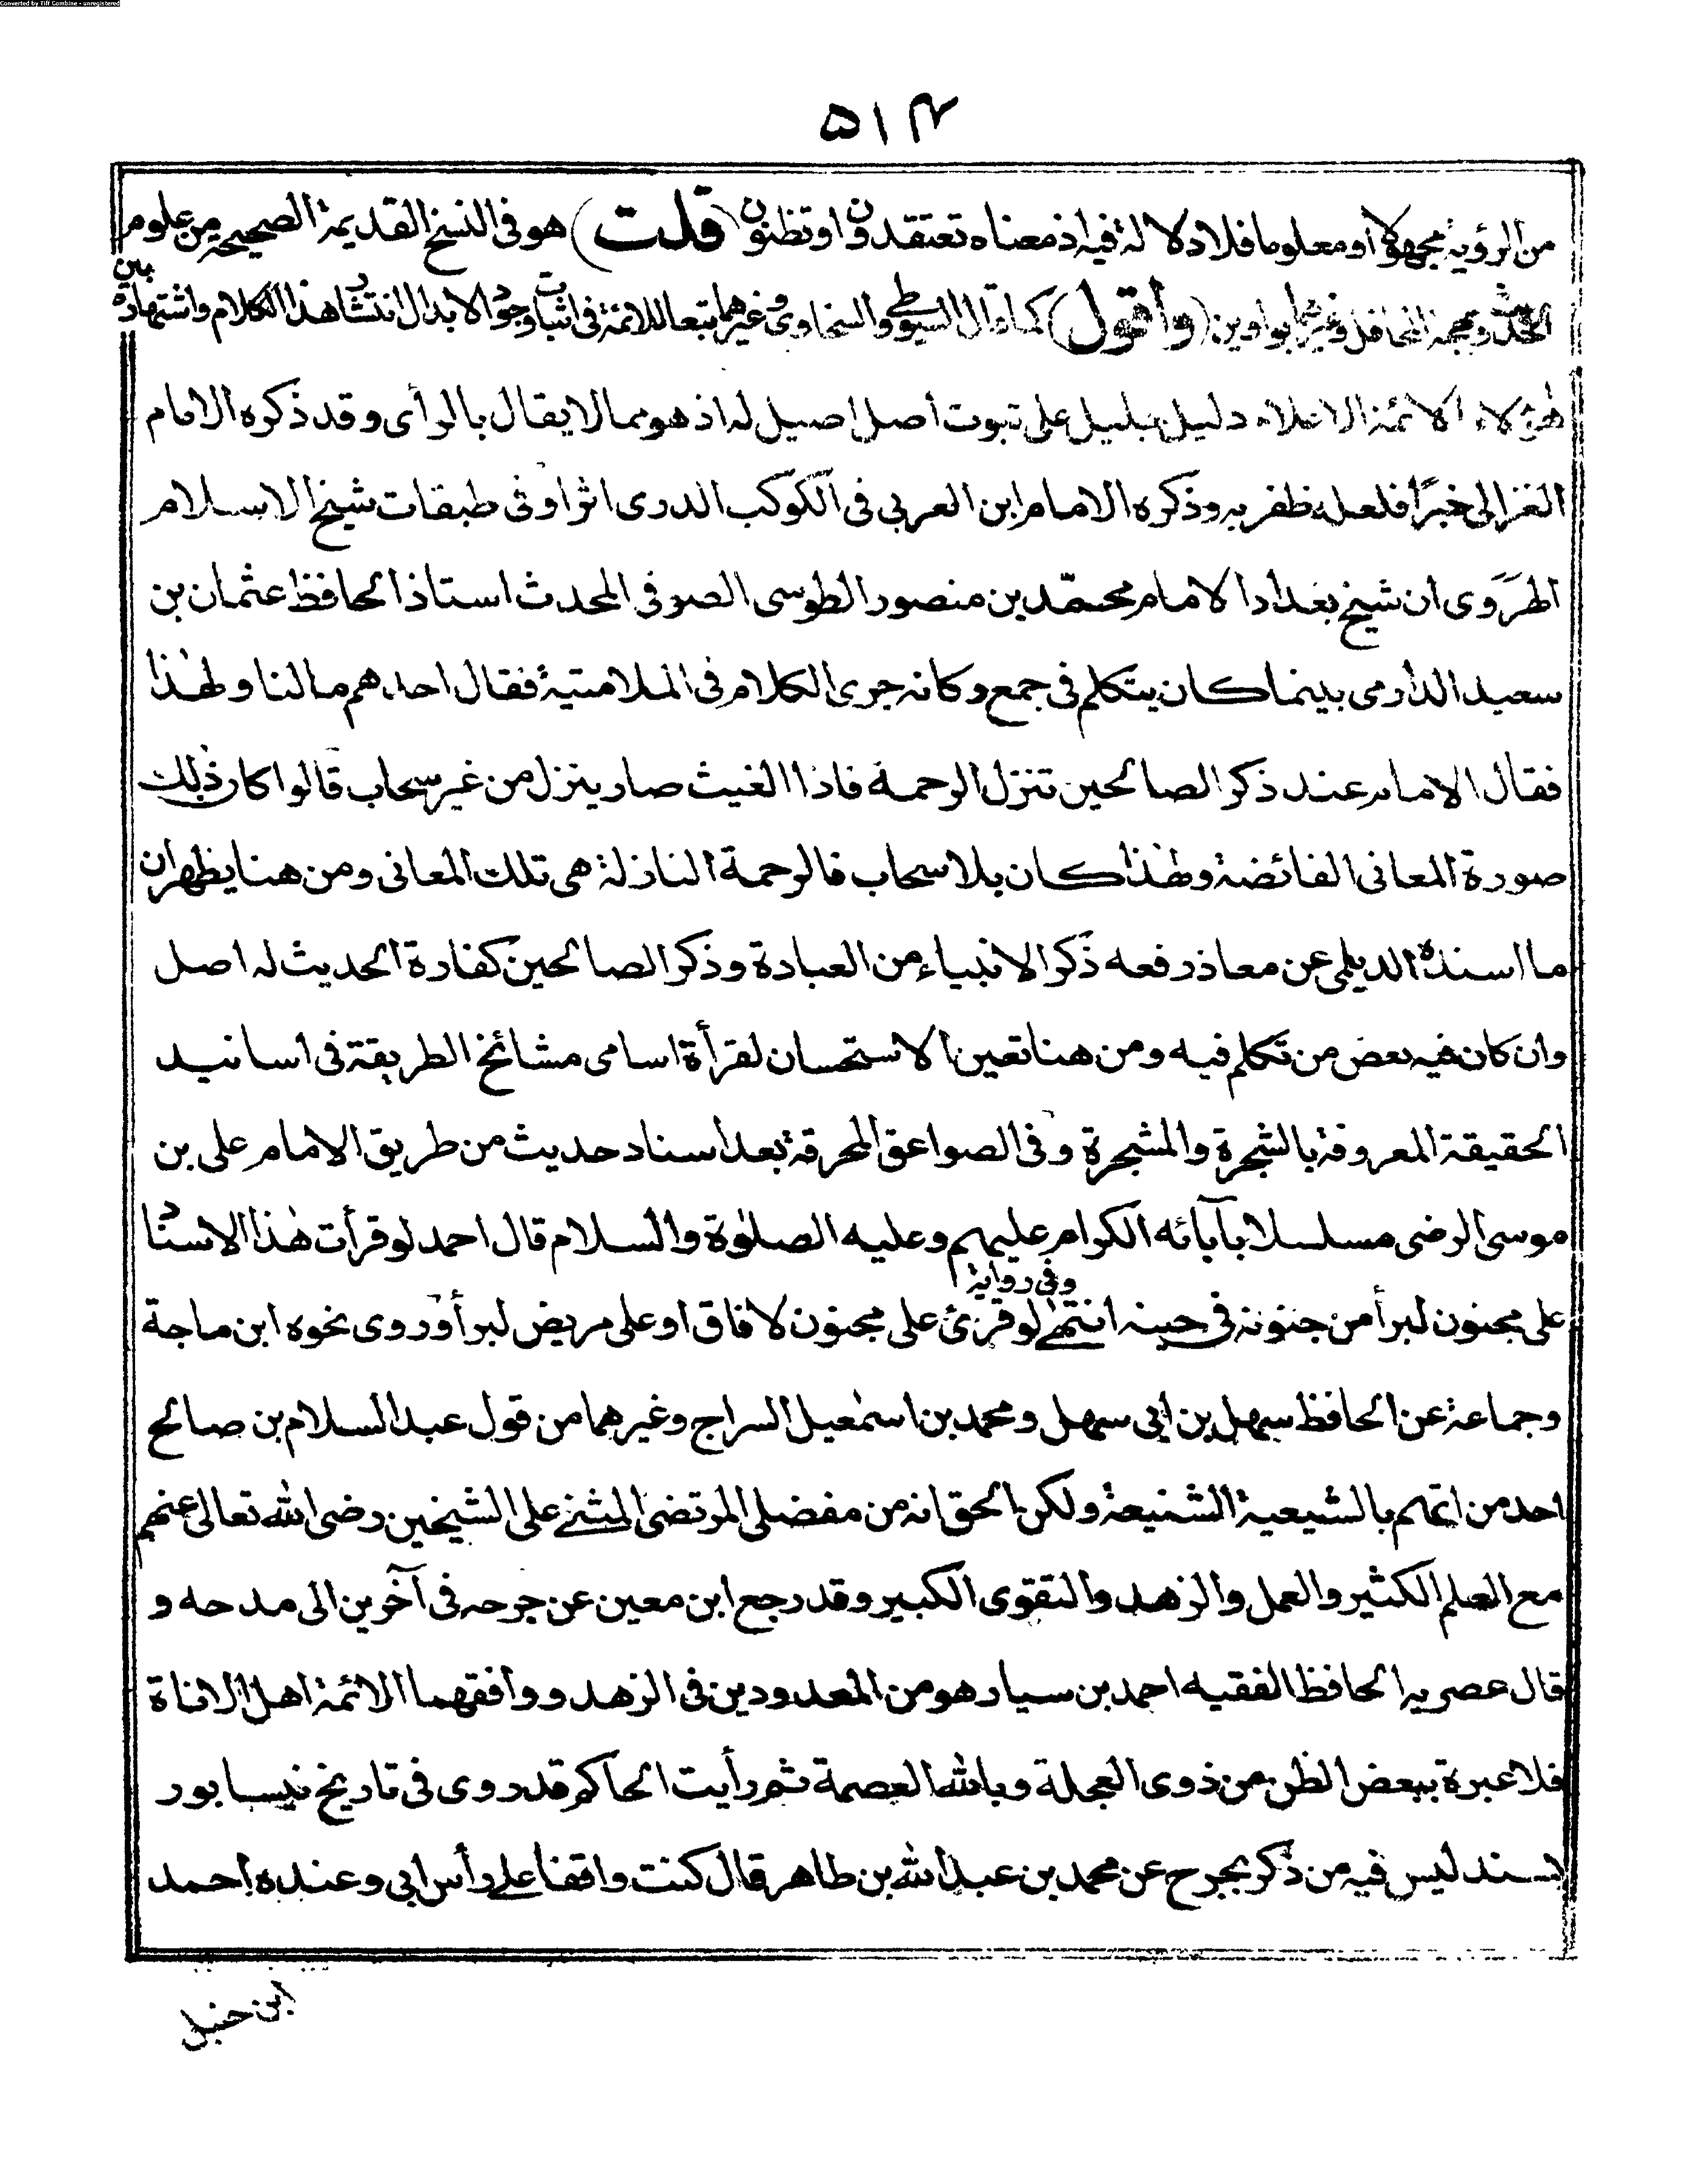 Converted by Tiff Combine - unregistered
۵۱۴
من الرؤية مجهولا أو معلوما فلا دلالة فيه اذ معناه تعتقدون او تظنون (قلت) هو فى النسخ القديمة الصحيحة من علوم
الحديث وبهجة المحافل وغيرهما بواوين (وأقول) كما قال السيوطى والسخاوى وغيرهما تبعا للائمة فى اثبات وجود الابدال انتشار هذا الكلام واشتهاره بين
هؤلاء الائمة الاعلاء دليل جليل على ثبوت أصل اصيل له اذ هو مما لا يقال بالرأى وقد ذكره الامام
الغزالى خبرًا فلعله ظفر به وذكره الامام ابن العربي فى الكوكب الدرى اثرا وفى طبقات شيخ الاسلام
الهروى ان شيخ بغداد الامام محمّد بن منصور الطوسى الصوفى المحدث استاذ الحافظ عثمان بن
سعيد الدارمى بينما كان يتكلم فى جمع وكانه جرى الكلام فى الملامتية فقال احدهم مالنا ولهذا
فقال الامام عند ذكر الصالحين تنزل الرحمة فاذا الغيث صار ينزل من غير سحاب قالوا كان ذلك
صورة المعانى الفائضة ولهذا كان بلا سحاب فالرحمة النازلة هى تلك المعانى ومن هنا يظهر ان
ما اسنده الديلمى عن معاذ رفعه ذكر الانبياء من العبادة وذكر الصالحين كفارة الحديث له اصل
وان كان فيه بعض من تكلم فيه ومن هنا تعين الاستحسان لقرأة اسامى مشائخ الطريقة فى اسانيد
الحقيقة المعروفة بالشجرة والمشجرة وفى الصواعق المحرقة بعد اسناد حديث من طريق الامام على بن
موسى الرضى مسلسلا بآبائه الكرام عليهم وعليه الصلوٰة والسلام قال احمد لو قرأت هٰذا الاسناد
على مجنون لبرأ من جنونه فى حينه انتهٰى وفى رواية لو قرئ على مجنون لافاق او على مريض لبرأ وروى نحوه ابن ماجة
وجماعة عن الحافظ سهل بن ابى سهل ومحمد بن اسمٰعيل السراج وغيرهما من قول عبد السلام بن صالح
احد من اتهم بالشيعية الشنيعة ولكن الحق انه من مفضلى المرتضى المثنى على الشيخين رضى الله تعالى عنهم
مع العلم الكثير والعمل والزهد والتقوى الكبير وقد رجع ابن معين عن جرحه فى آخرين الى مدحه و
قال عصريه الحافظ الفقيه احمد بن سيار هو من المعدودين فى الزهد ووافقهما الائمة اهل الاناة
فلا عبرة ببعض الظن من ذوى العجلة وبالله العصمة ثم رأيت الحاكم قد روى فى تاريخ نيسابور
بسند ليس فيه من ذكر بجرح عن محمد بن عبد الله بن طاهر قال كنت واقفا على رأس ابى وعنده احمد
ابن حنبل